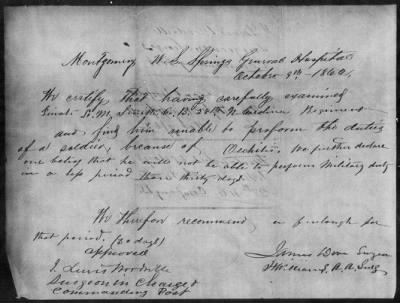 Montgomery W. S. Springs General Hospital
October 9th - 1862.
We certify that having carefully examined
B. N. Carolina Regiment
and find him unable to preform the duties
of a soldier, because of Orchitis, We further declare
our belief that he will not be able to perform Military duty
in a less period than thirty days.
We therefore recommend a furlough for
that period, (30 days)
Approved
James Surgeon
J. Lewis Woodville A. A. Surg
Surgeon in Charge &
Commanding Post